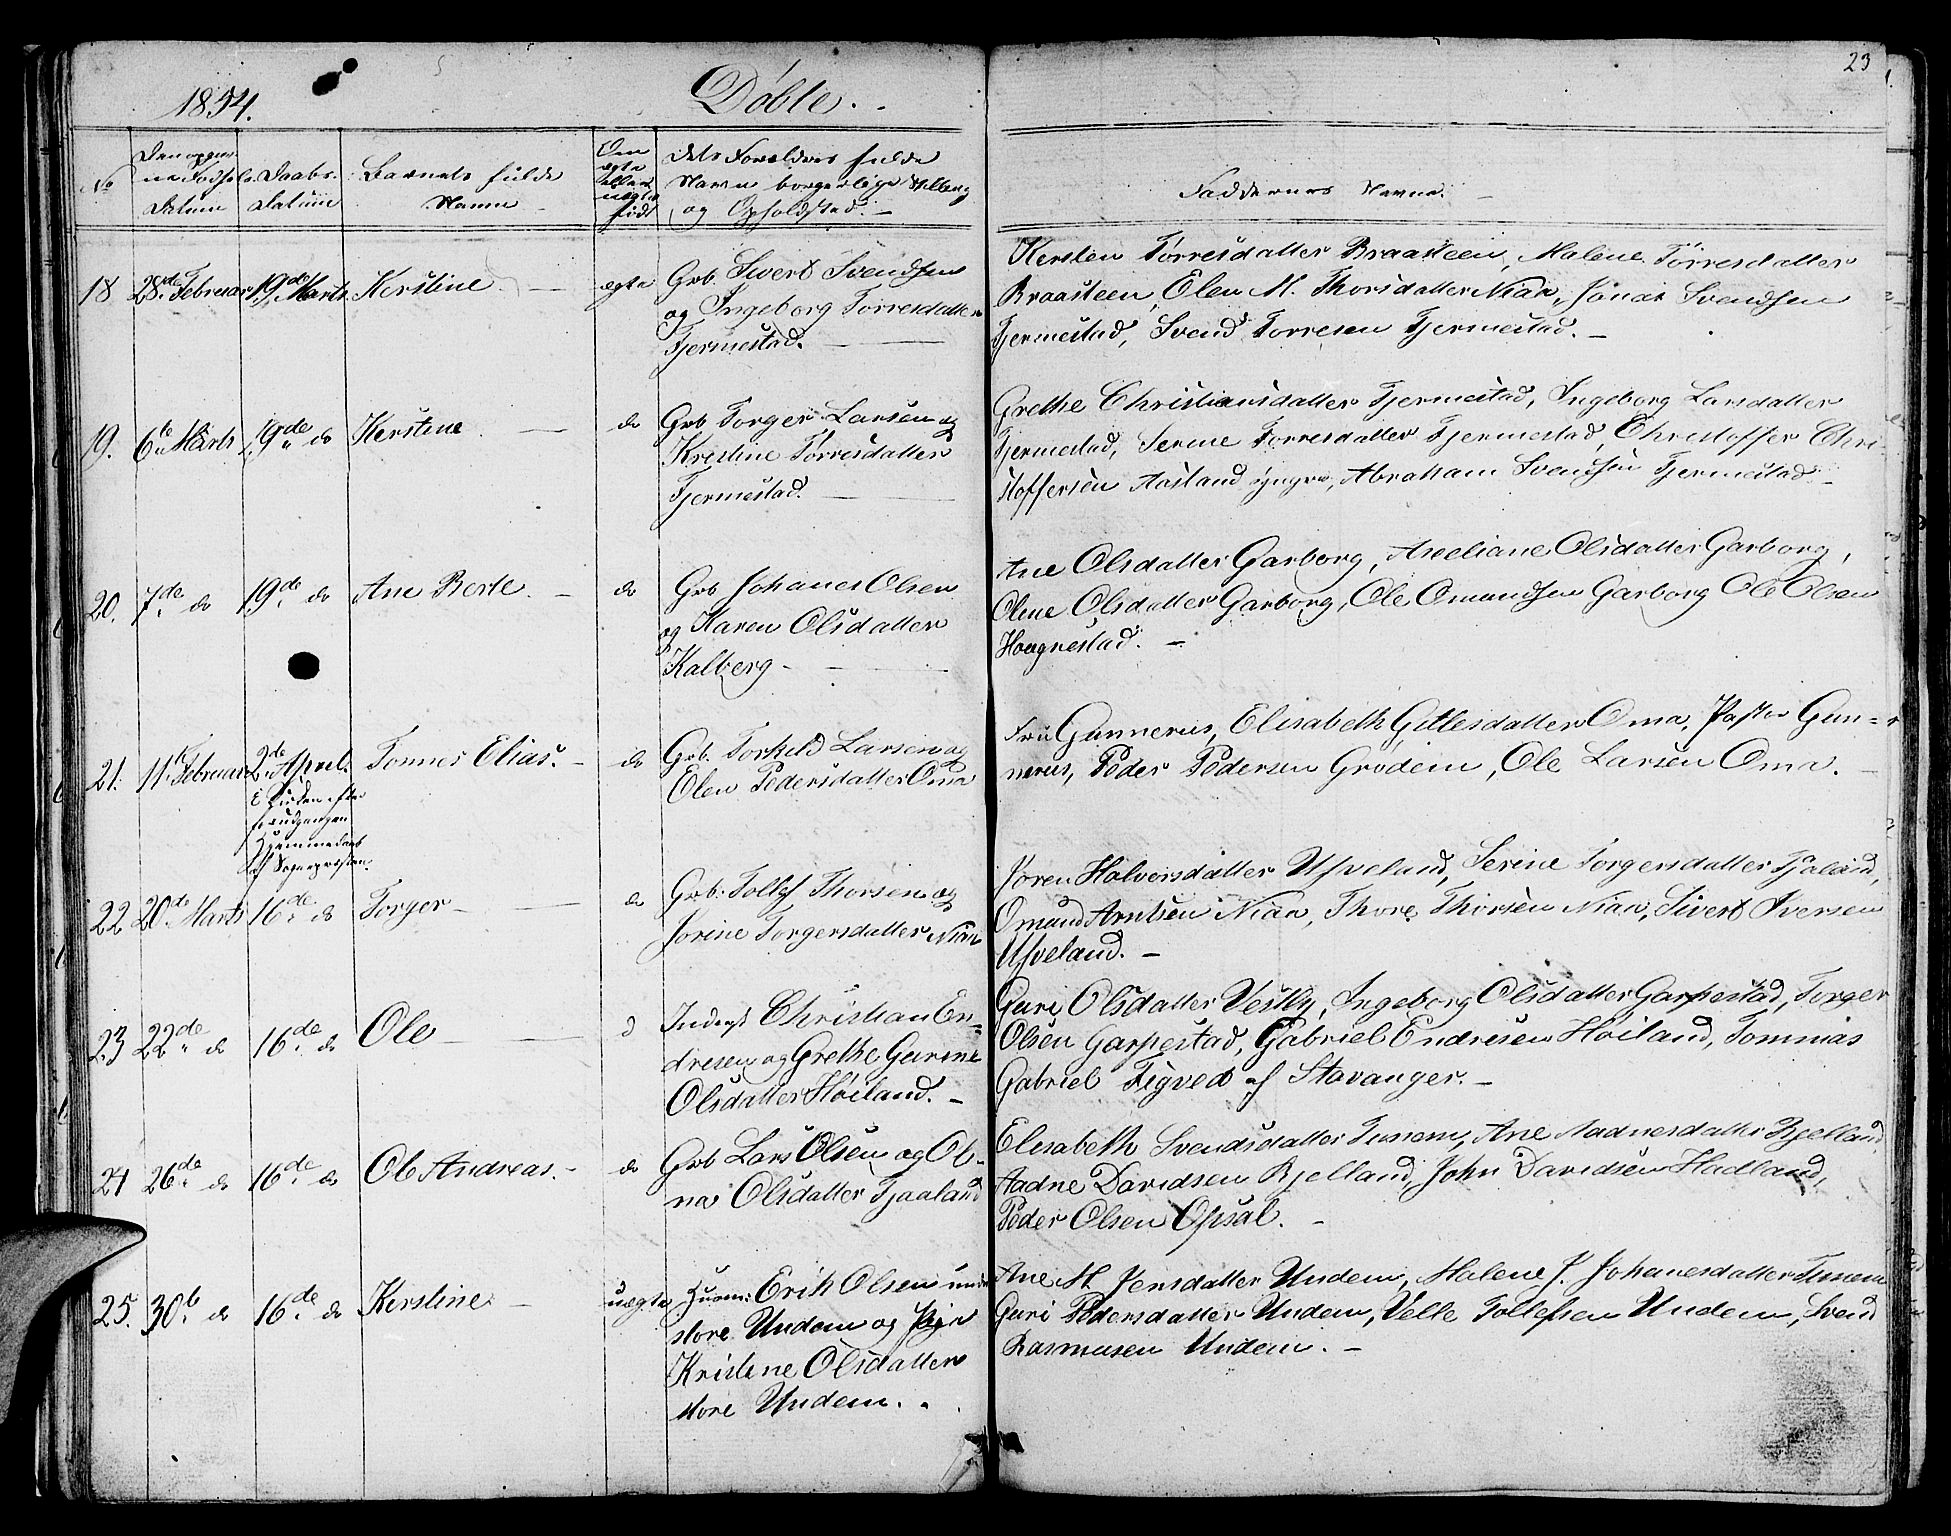 23
1854.
Døbte.
No
Den opgivne Fødsels Datum
Daabs Datum
Barnets fulde Navne
Om ægte eller uægte født
dets Forældres fulde Navne borgerlige Stilling og Opholdsted.
Faddernes Navne.
18 28de Februar 19de Marts Kerstine ægte
Grb. Sivert Svendsen
og Ingeborg Torresdatter
Tjermestad.
Kersten Tørresdatter Braasteen, Malene Törresdatter
Braasteen, Elen M. Thorsdatter Niaa, Jonas Svendsen
Tjermestad, Svend Torresen Tjermestad.
19. 6te Marts 19de do Kerstine do
Grb Torger Larsen og
Kristine Tørresdatter
Tjermestad.
Grethe Christiansdatter Tjermestad, Ingeborg Larsdatter
Tjermestad, Serine Torresdatter Tjermestad, Christoffer Chri-
stoffersen Aasland yngre, Abraham Svendsen Tjermestad.
20. 7de do 19de do Ane Berte. do
Grb Johanes Olsen
og Karen Olsdatter
Kalberg
Ane Olsdatter Garborg, Aveliane Olsdatter Garborg,
Oline Olsdatter Garborg, Ole Omundsen Garborg Ole Olsen
Hougnestad.
21. 11te Februar 2de April. Tonnes Elias. do
E Kirken efter
forudgangen
Hjemmedaab
af Sognepræsten.
Grb. Torkild Larsen og
Elen Pedersdatter Oma
Fru Gunnerus, Elisabeth Gitlesdatter Oma, Pastor Gun-
nerus, Peder Pedersen Grodem, Ole Larsen Oma.
22 20de Marts 16de do Torger do
Grb. Tollef Thorsen og
Jorine Torgersdatter Niaa
Joren Halvorsdatter Udsveland, Serine Torgersdatter Tjaland,
Omund Arntsen Niaa, Thore Thorsen Niaa, Sivert Iversen
23 22de do 16de do Ole d
Inderst Christian En-
dresen og Grethe Gurine
Olsdatter Høiland.
Guri Olsdatter Vestly, Ingeborg Olsdatter Garpestad, Torger
Olsen Garpestad, Gabriel Endresen Høiland, Tommas
Gabriel Tigved af Stavanger.
24 26de do 16de do Ole Andreas. do
Grb Lars Olsen og Ol-
na Olsdatter Tjaaland
Elisabeth Svendsdatter Tunem, Ane Aadnesdatter Bjelland,
Aadne Davidsen Bjelland, John Davidsen Hadland,
Peder Olsen Opsal.
25. 30te do 16de do Kerstine uægte
Huusm: Erik Olsen under
store Undem og Pige
Kristine Olsdatter
store Undem.
Ane M. Jensdatter Undem, Malene J. Johanesdatter Tunem
Guri Pedersdatter Undem, Velle Tollefsen Undem, Svend
Rasmusen Undem.